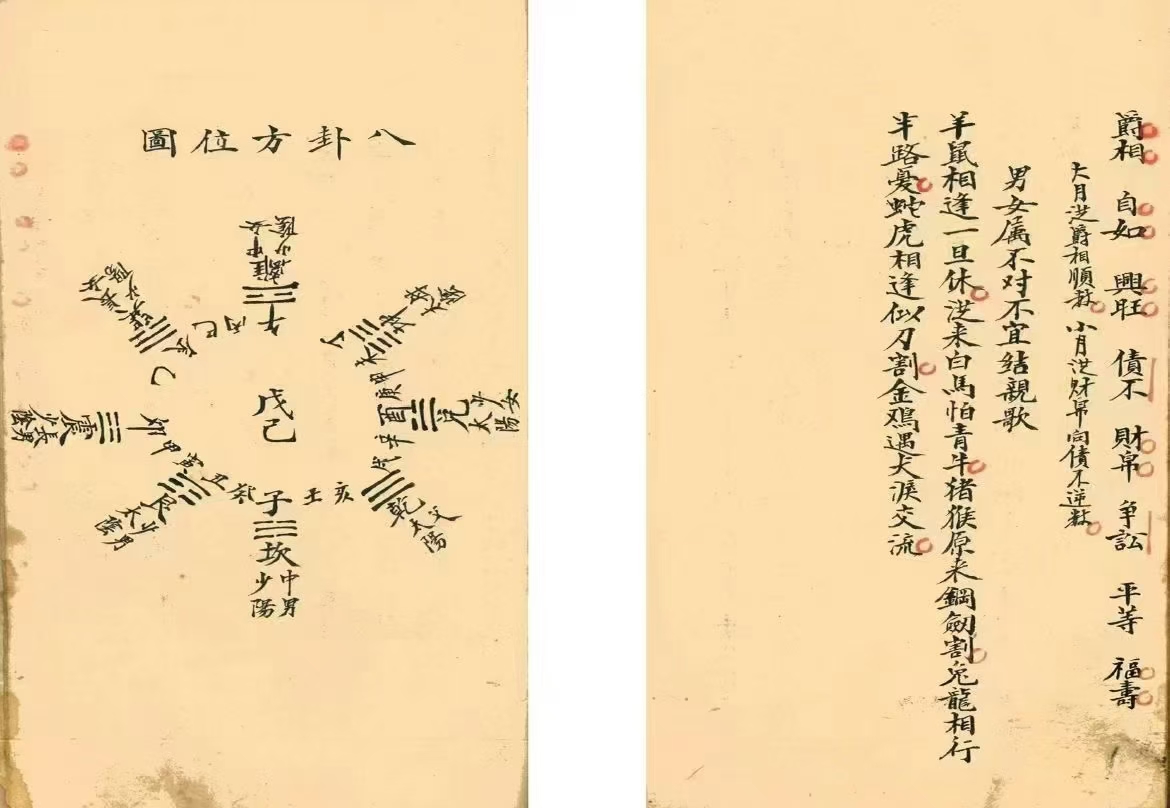 爵相 自如 興旺 債不 財帛 爭訟 平等 福壽
大月從爵相順数 小月從財帛向債不逆数
男女属不对不宜结親歌
羊鼠相逢一旦休從来白馬怕青牛猪猴原来鋼劍割兔龍相行
半路憂蛇虎相逢似刀割金鷄遇犬淚交流
八卦方位圖
離
中女
少陰
午
丁
未
坤
母
太陰
申
庚
酉
兌
少女
太陽
辛
戌
乾
父
太陽
亥
壬
子
坎
中男
少陽
癸
丑
艮
少男
太陰
寅
甲
卯
震
長男
少陰
乙
辰
巽
長女
少陽
巳
丙
戊己